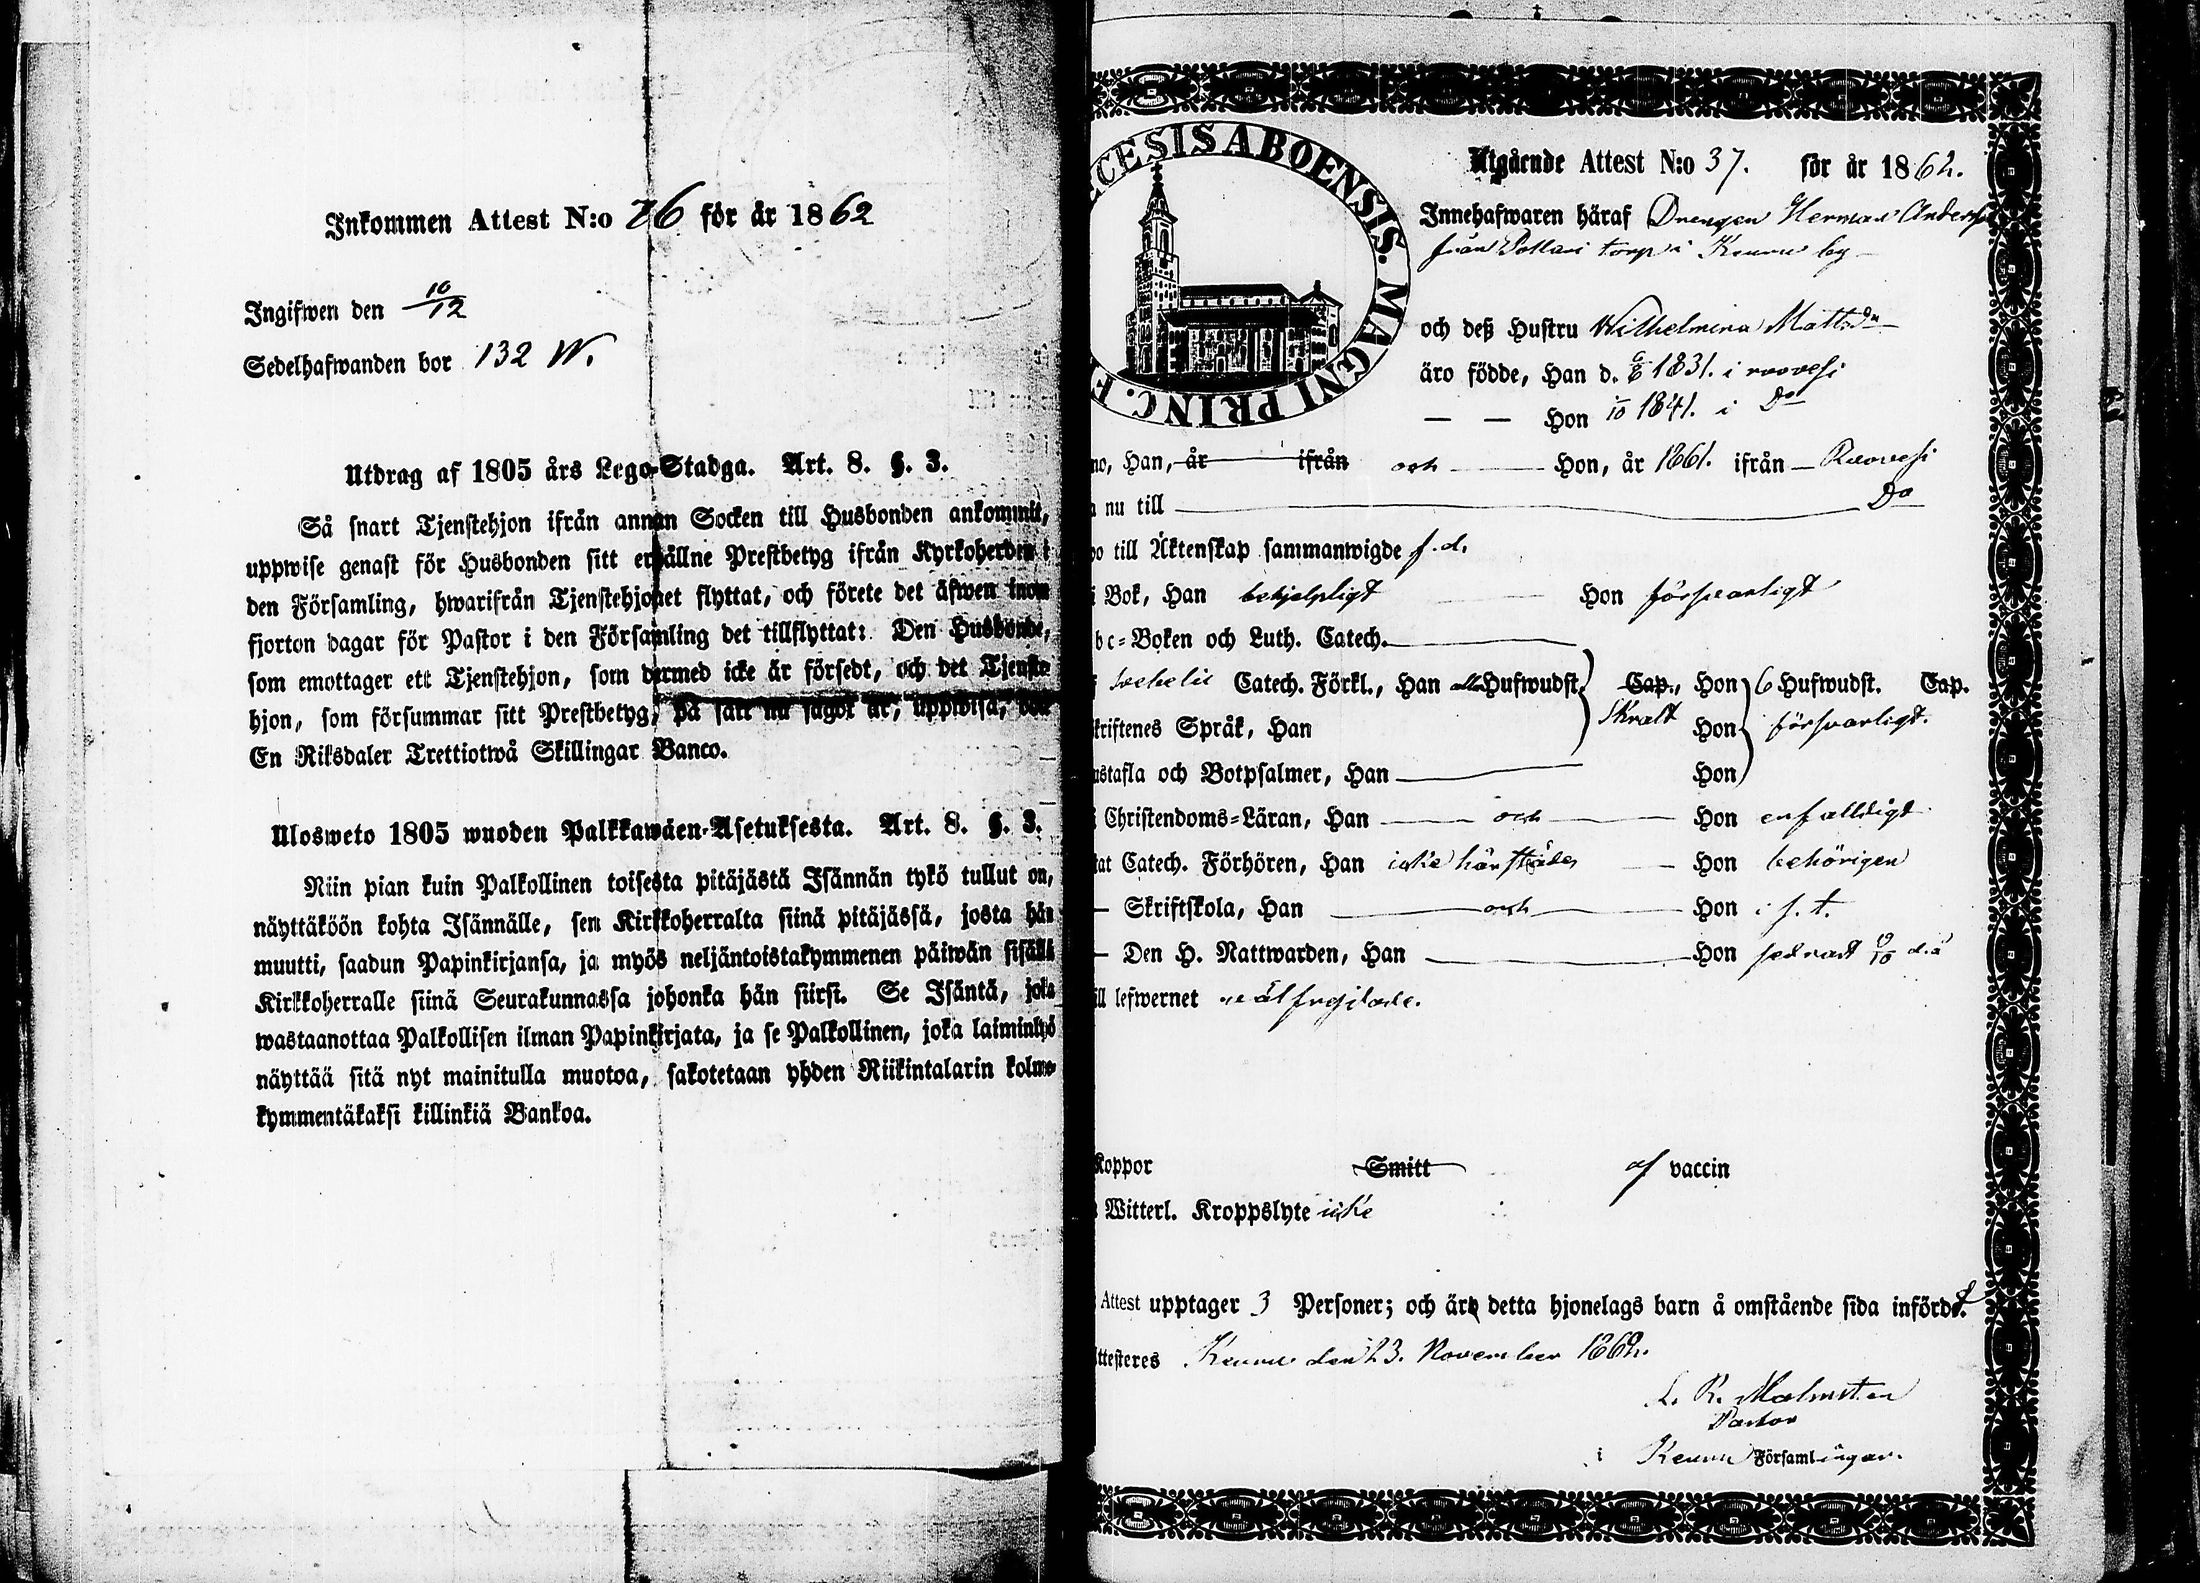 Inkommen Attest N:o 76 för år 1862
Ingifwen den 10/12
Sedelhafwanden bor 132 W.
Utdrag af 1805 års Lego-Stadga. Art. 8. §. 3.
Så snart Tjenstehjon ifrån annan Socken till Husbonden ankommit,
uppwise genast för Husbonden sitt erhållne Prestbetyg ifrån Kyrkoherden i
den Församling, hwarifrån Tjenstehjonet flyttat, och förete det äfwen inom
fjorton dagar för Pastor i den Församling det tillflyttat: Den Husbonde,
som emottager ett Tjenstehjon, som dermed icke är försedt, och det Tjenste-
hjon, som försummar sitt Prestbetyg, på sätt nu sagdt är, uppwisa,
En Riksdaler Trettiotwå Skillingar Banco.
Ulosweto 1805 wuoden Palkkawäen-Asetuksesta. Art. 8. §. 3.
Niin pian kuin Palkollinen toisesta pitäjästä Isännän tykö tullut on,
näyttäköön kohta Isännälle, sen Kirkkoherralta siinä pitäjässä, josta hän
muutti, saadun Papinkirjansa, ja myös neljäntoistakymmenen päiwän sisällä
Kirkkoherralle siinä Seurakunnassa johonka hän siirsi. Se Isäntä, joka
wastaanottaa Palkollisen ilman Papinkirjata, ja se Palkollinen, joka laiminlyö
näyttää sitä nyt mainitulla muotoa, sakotetaan yhden Riikintalarin kolme-
kymmentäkaksi killinkiä Bankoa.
CESIS ABOENSIS. MAGNI PRINC. F
Utgående Attest N:o 37. för år 1862.
Innehafwaren häraf Drengen Herman Anders
från torp i Keuru by
och deß Hustru Wilhelmina Mattsdr
äro födde, Han d. 6/6 1831. i Ruovesi
— — Hon 1/10 1841. i Do
no, Han, år ifrån och Hon, år 1861. ifrån Ruovesi
nu till Do
till Äktenskap sammanwigde f. d.
i Bok, Han behjelpligt Hon försvarligt
bc-Boken och Luth. Catech.
Catech. Förkl., Han alla Hufwudst. Cap., Hon 6 Hufwudst. Cap.
kriftenes Språk, Han Skralt Hon försvarligt.
ustafla och Botpsalmer, Han Hon
Christendoms-Läran, Han och Hon enfalldigt
tat Catech. Förhören, Han icke härstädes Hon behörigen
— Skriftskola, Han och Hon i f. t.
— Den H. Nattwarden, Han Hon sednast 19/10 d. å
ill lefwernet välfrejdade.
Koppor Smitt af vaccin
Witterl. Kroppslyte icke
Attest upptager 3 Personer; och äro detta hjonelags barn å omstående sida införde.
ttesteres Keuru den 23. November 1862.
L. R. Malmsten
Pastor
i Keuru Församlingar.